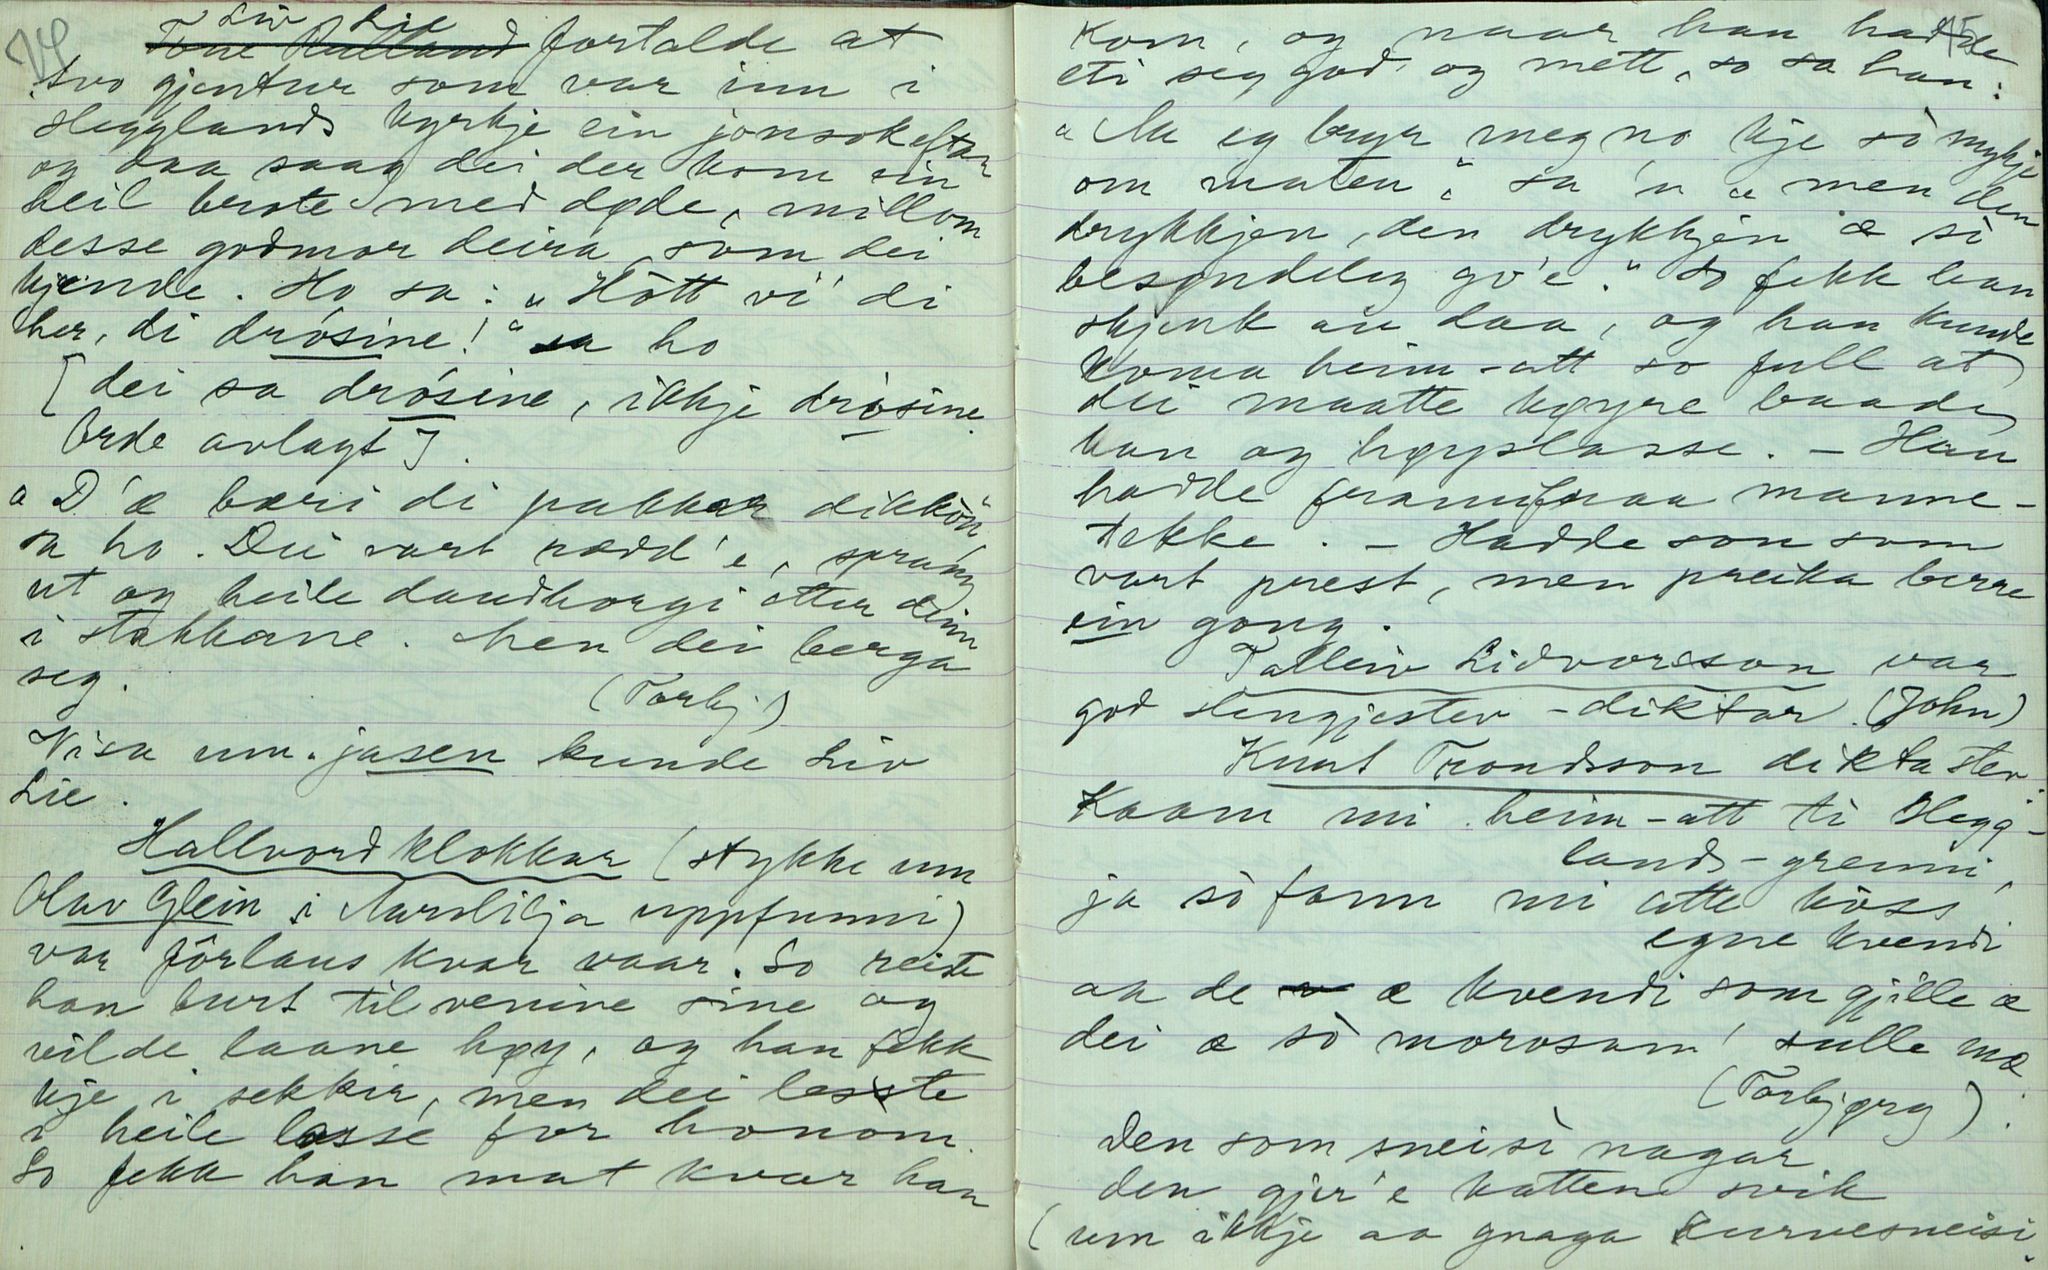 74
Liv Lie
Tone Rulland fortalde at
tvo gjentur som var inn i
Hegglands kyrkje ein jonsokeftan
og daa saag dei der kom ein
heil brote med døde, millom
desse godmor deira som dei
kjende. Ho sa: "Hött vi' di
her, di drósine!" sa ho
[dei sa drósine, ikkje drösine.
Orde avlagt].
"D'æ bæri di pakkar dikkön"
sa ho. Dei vart rædd'e, sprang
ut og heile daudhorgi etter deim
i stakkane. Men dei berga
seg.
(Torbj)
Visa um jasen kunde Liv
Lie.
Hallvord klokkar (stykke um
Olav Glein i Aurlilja uppfunni)
var fôrlaus kvar vaar. So reiste
han burt til venine sine og
vilde laane høy, og han fekk
kje i sekkir, men dei lesste
i heile lasse for honom.
So fekk han mat kvar han
75
kom, og naar han hadde
eti seg god og mett, so sa han:
"Aa eg bryr meg no kje sò mykje
om maten" sa'n "men den
drykkjen, den drykkjen æ sò
besyndeleg go'e." So fekk han
skjenk au daa, og han kunde
koma heim-att so full at
dei maatte køyre baade
han og høyslasse. - Han
hadde framifraa manne-
tekke. - Hadde son som
vart prest, men preika berre
ein gong.
Talleiv Lidvorsson var
god stengjestev-diktar. (John)
Knut Trondsson dikta stev:
Kaam mi heim-att ti Hegg-
lands-grenni,
ja sò fann mi atte kòss
egne kvendi
aa de æ kvendi som gjille æ
dei æ sò morosam' sulle mæ
(Torbjørg).
Den som sneisì nagar
den gjer'e katten svik
(um ikkje aa gnaga kurvesneisi.